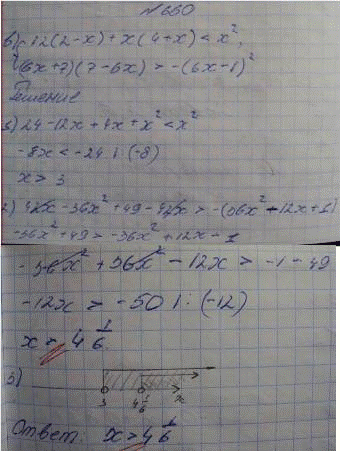 №660
б) 12(2-x)+x(4+x) < x²,
(6x+7)(7-6x) > -(6x-1)²
Решение
1) 24-12x+4x+x² < x²
-8x < -24 |:(-8)
x > 3
2) 42x-36x²+49-42x > -(36x²-12x+1)
-36x²+49 > -36x²+12x-1
-36x²+36x²-12x > -1-49
-12x > -50 |:(-12)
x > 4 1/6
3)
3 4 1/6 x
Ответ. x > 4 1/6